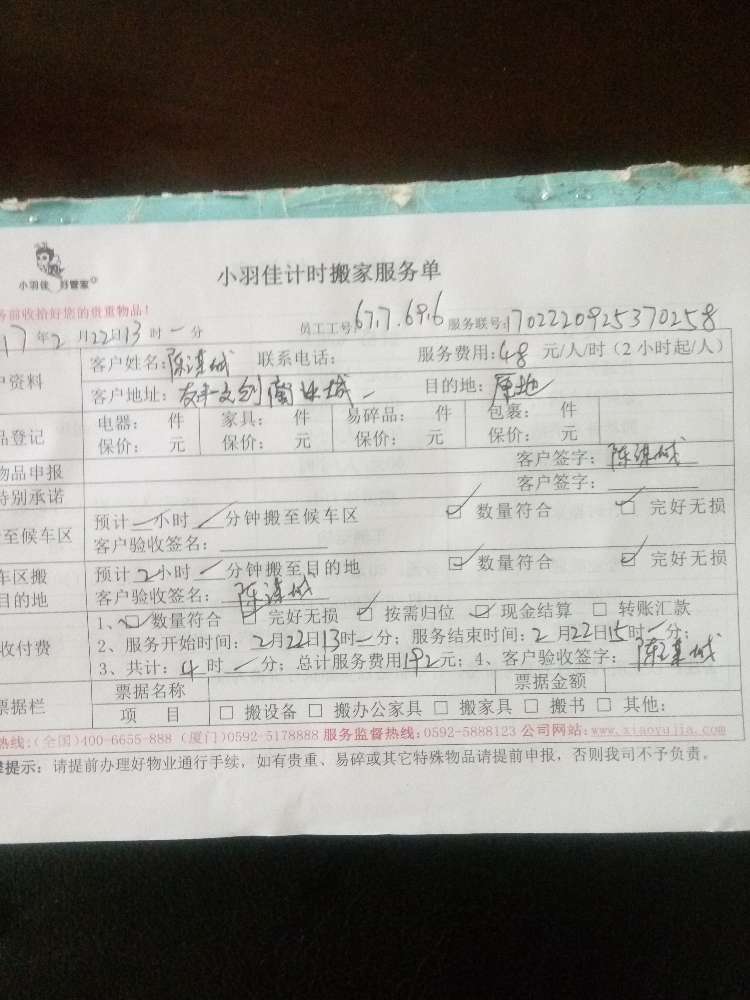 小羽佳 好管家®
小羽佳计时搬家服务单
务前收拾好您的贵重物品!
17年2月22日13时一分 员工工号:67.7.69.6 服务联号:1702220925370258
户资料 客户姓名:陈谋城 联系电话: 服务费用:48元/人/时(2小时起/人)
客户地址: 友丰文创 城 目的地:原地
品登记 电器: 件 家具: 件 易碎品: 件 包裹: 件
保价: 元 保价: 元 保价: 元 保价: 元
物品申报 客户签字:陈谋城
特别承诺 客户签字:
至候车区 预计一小时一分钟搬至候车区 ☑ 数量符合 ☑ 完好无损
客户验收签名:
车区搬 预计2小时一分钟搬至目的地 ☑ 数量符合 ☑ 完好无损
目的地 客户验收签名:陈谋城
1、☑ 数量符合 ☑ 完好无损 ☑ 按需归位 ☑ 现金结算 □ 转账汇款
收付费 2、服务开始时间:2月22日13时一分;服务结束时间:2月22日15时一分;
3、共计:4时一分;总计服务费用192元;4、客户验收签字:陈谋城
票据栏 票据名称 票据金额
项 目 □ 搬设备 □ 搬办公家具 □ 搬家具 □ 搬书 □ 其他:
热线:(全国)400-6655-888 (厦门)0592-5178888 服务监督热线:0592-5888123 公司网站:www.xiaoyujia.com
提示:请提前办理好物业通行手续,如有贵重、易碎或其它特殊物品请提前申报,否则我司不予负责。